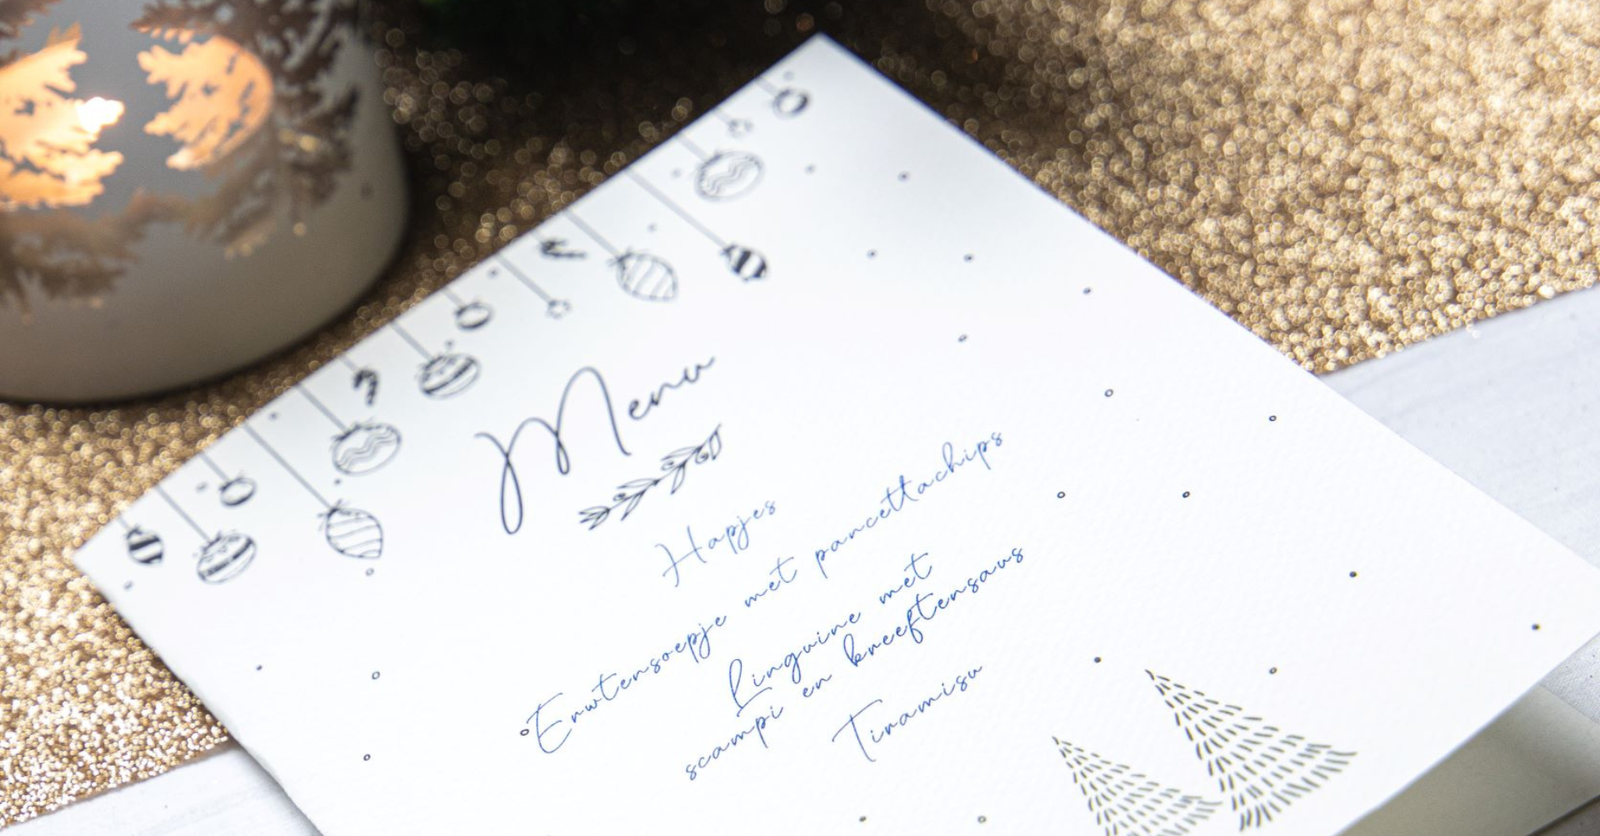 Menu
Hapjes
Erwtensoepje met pancettachips
Linguine met
scampi en kreeftensaus
Tiramisu